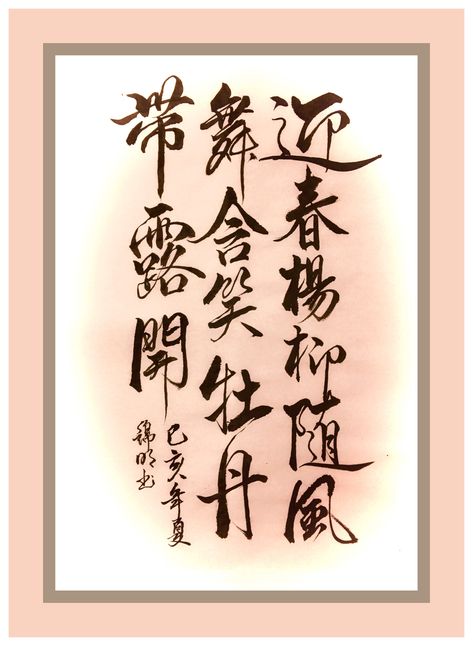 迎春楊柳隨風
舞含笑牡丹
帶露開
己亥年夏
錦明书